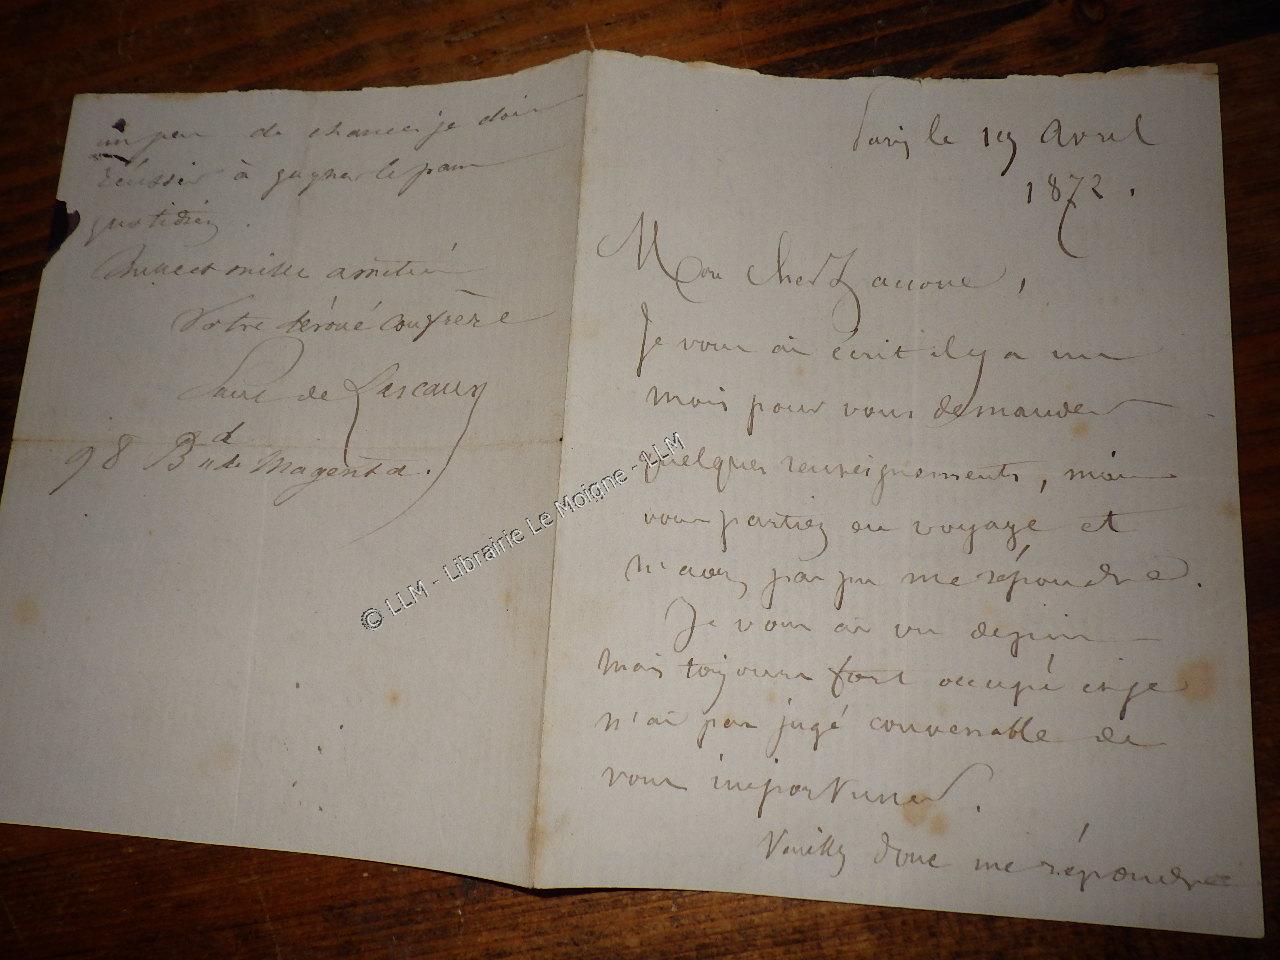 Paris le 19 Avril
1872.
Mon cher Zaccone,
Je vous ai écrit il y a un
mois pour vous demander
quelques renseignements, mais
vous partiez en voyage et
n'avez pas pu me répondre.
Je vous ai vu depuis
mais toujours fort occupé et je
n'ai pas jugé convenable de
vous importuner.
Veuillez donc me répondre
un peu de chance je dois
réussir à gagner le pain
quotidien.
mille amitiés
Votre dévoué confrère
Paul de Lascaux
98 Bd de Magenta.
© LLM - Librairie Le Moigne - LLM